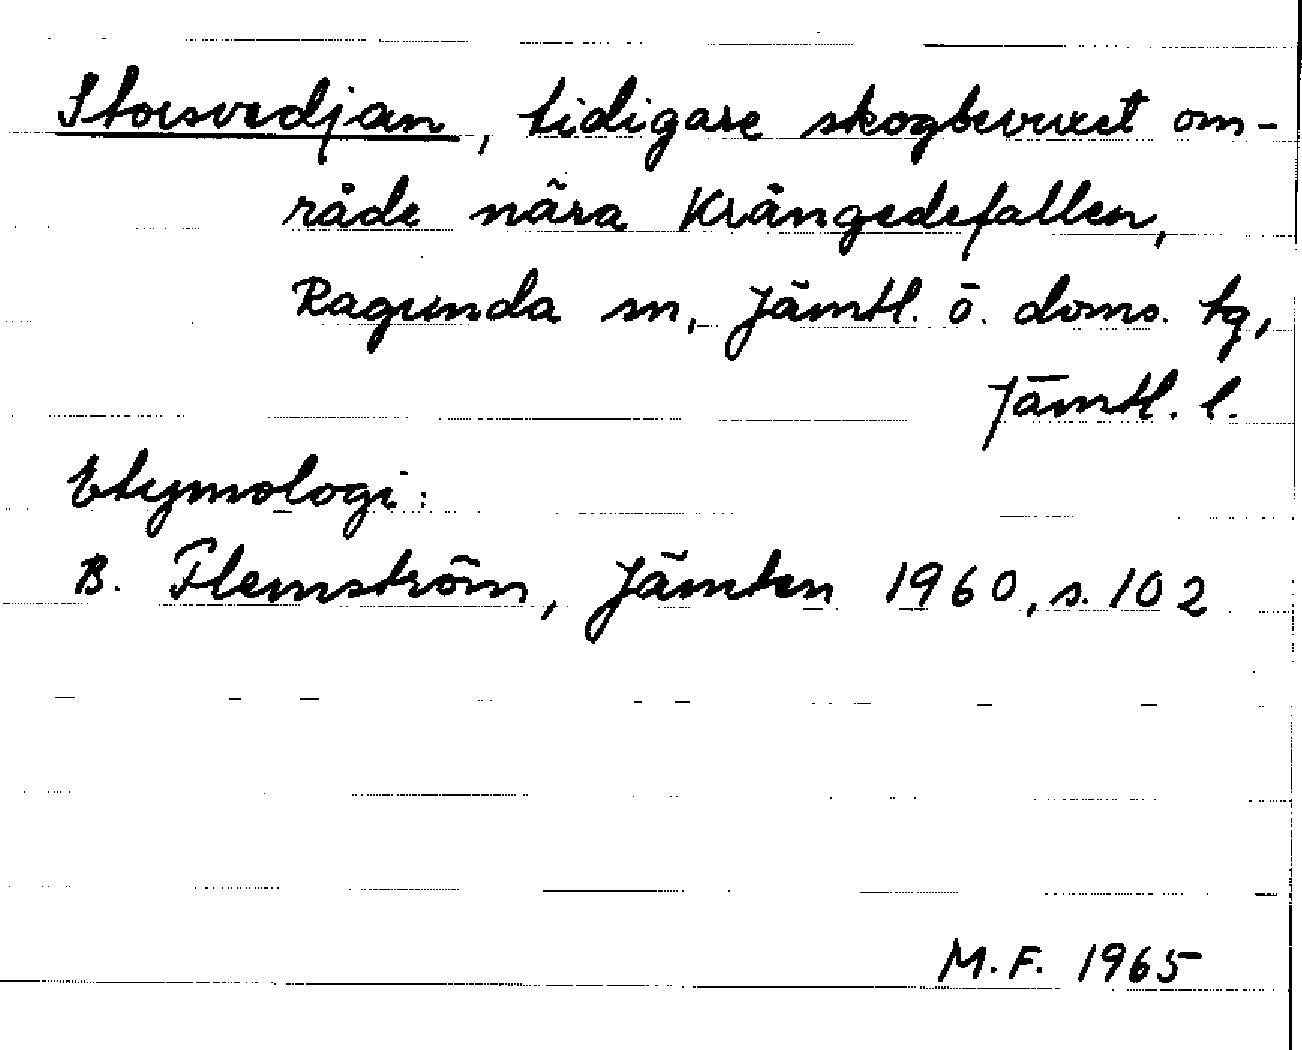 Storsvedjan, tidigare skogbevuxet om-
råde nära Krångedefallen,
Ragunda sn, Jämtl. ö. doms. tg,
Jämtl. l.
Etymologi:
B. Flemström, Jämten 1960, s. 102
M.F. 1965